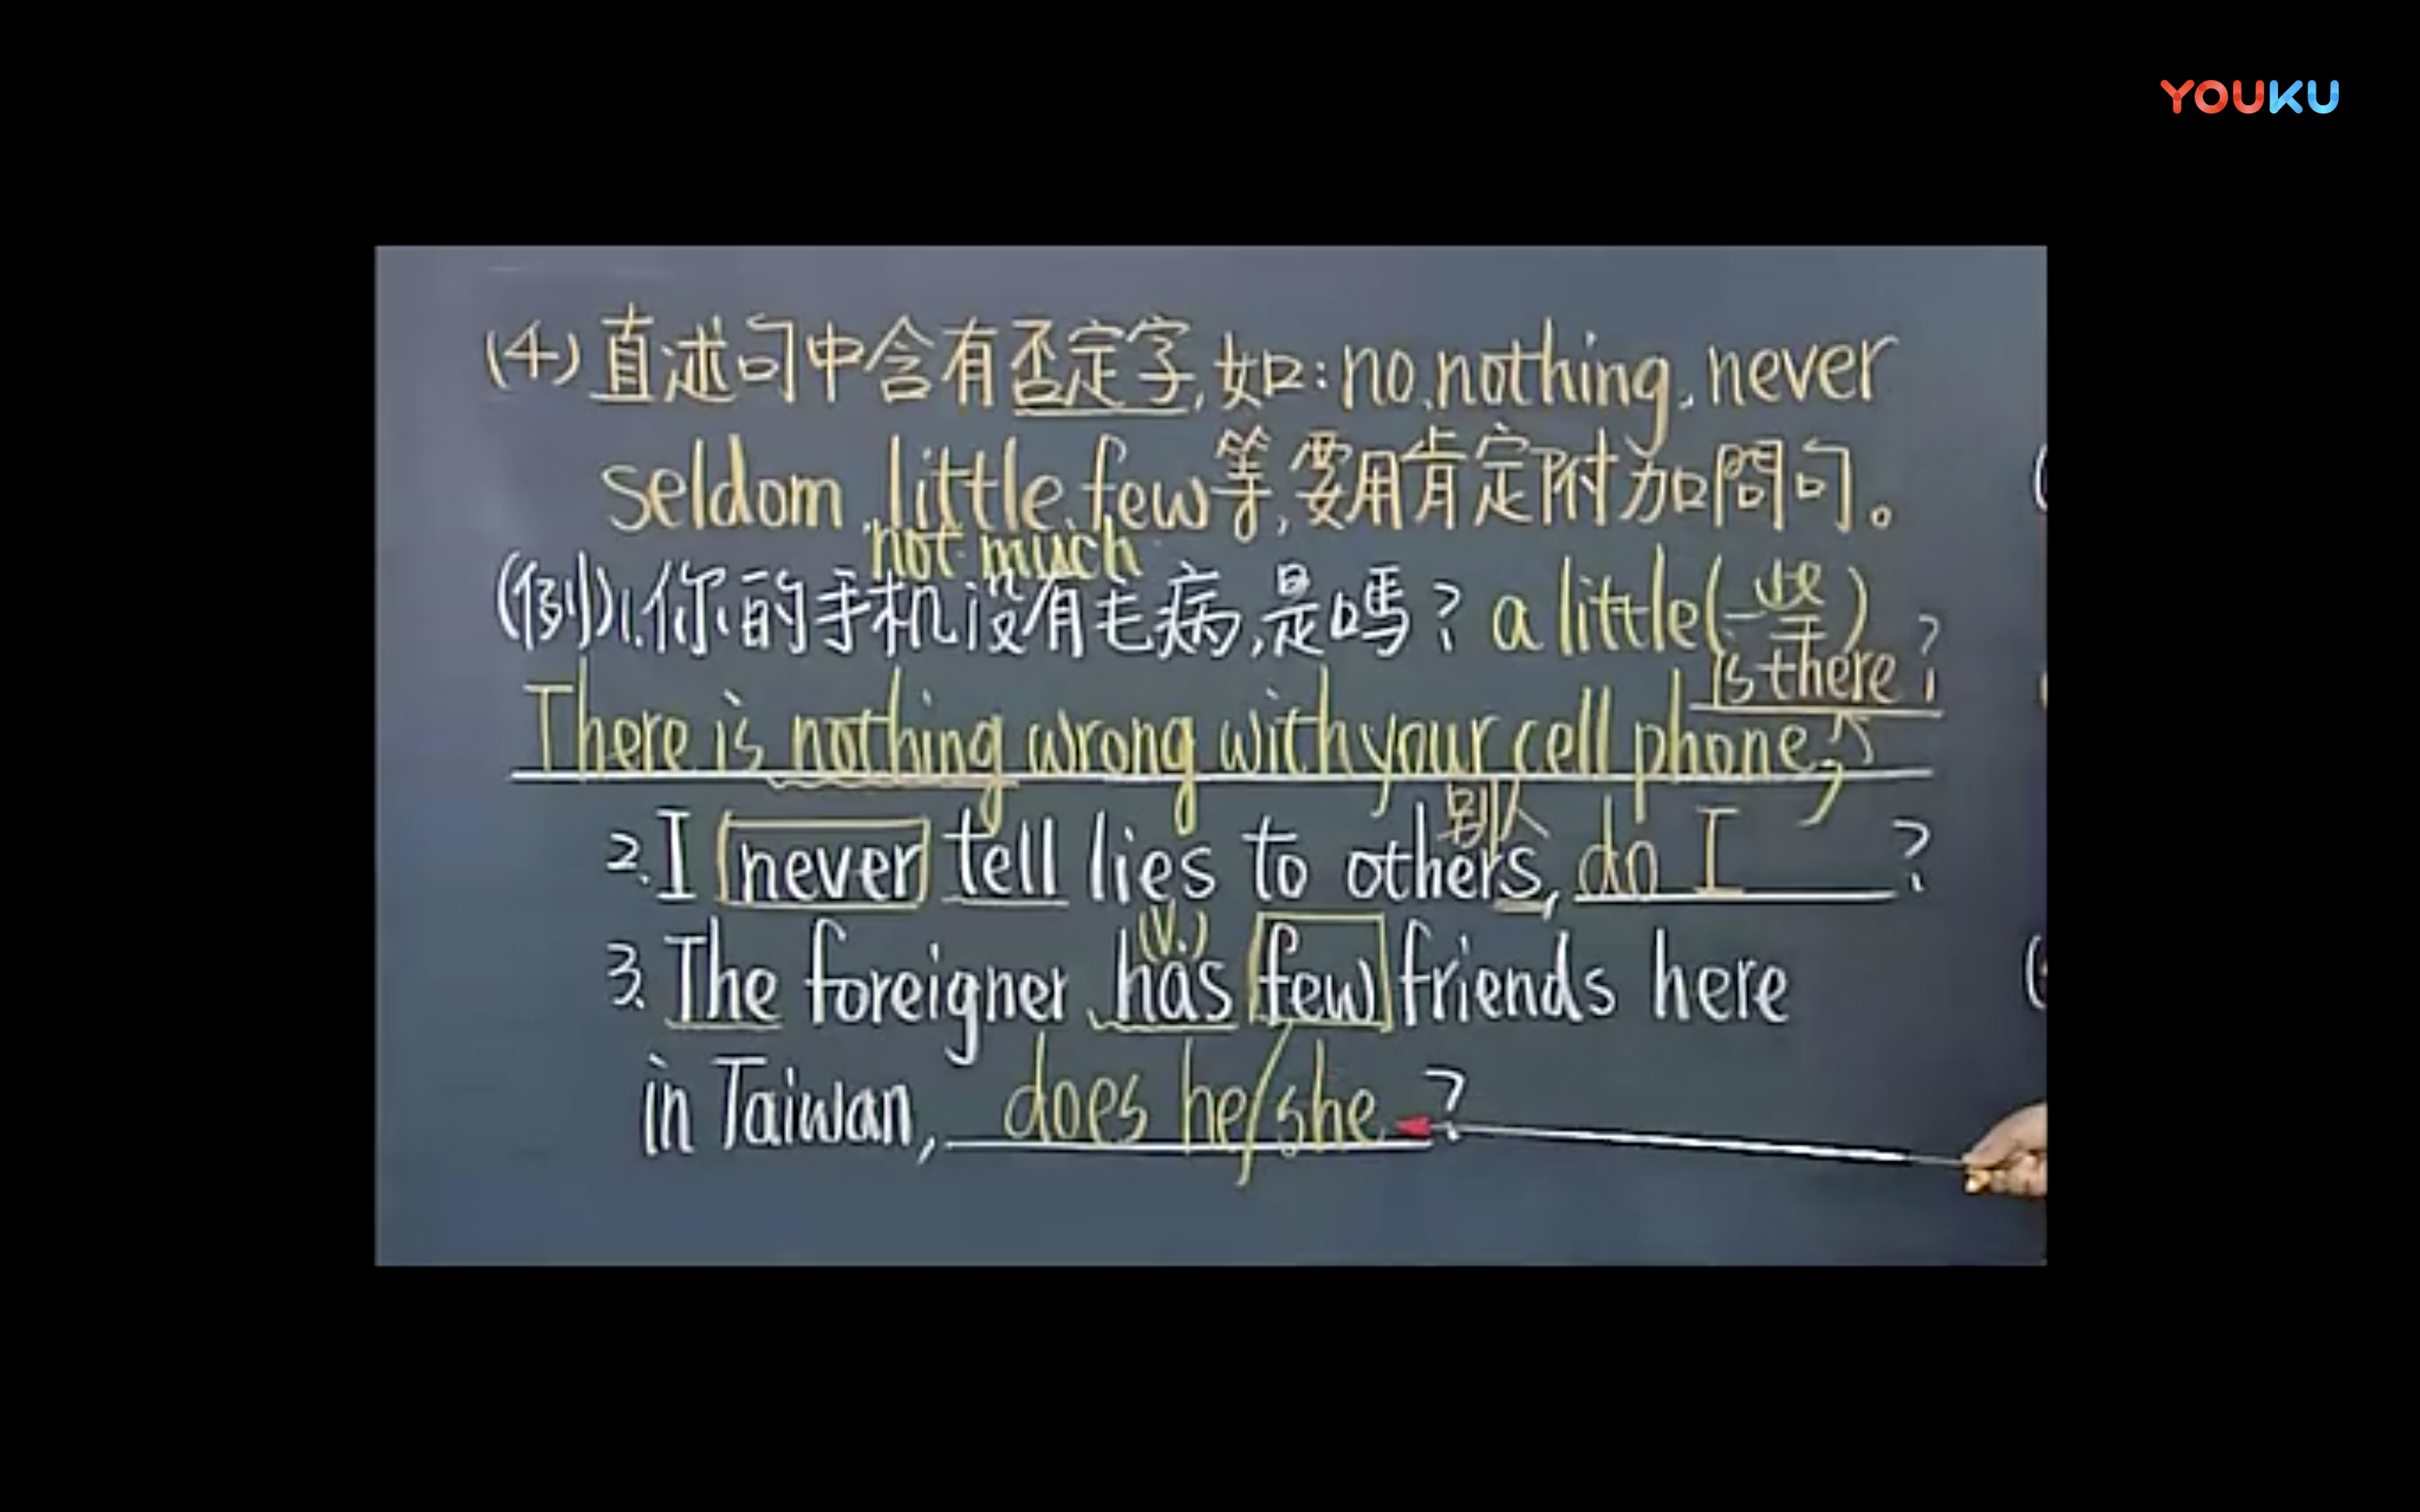 YOUKU
(4)直述句中含有否定字,如:no,nothing,never
seldom,little,few等,要用肯定附加問句。
not much
(例)1.你的手机沒有毛病,是嗎? a little(一些)
is there?
There is nothing wrong with your cell phone,
别人
2.I never tell lies to others, do I ?
(V.)
3.The foreigner has few friends here
in Taiwan, does he/she ?